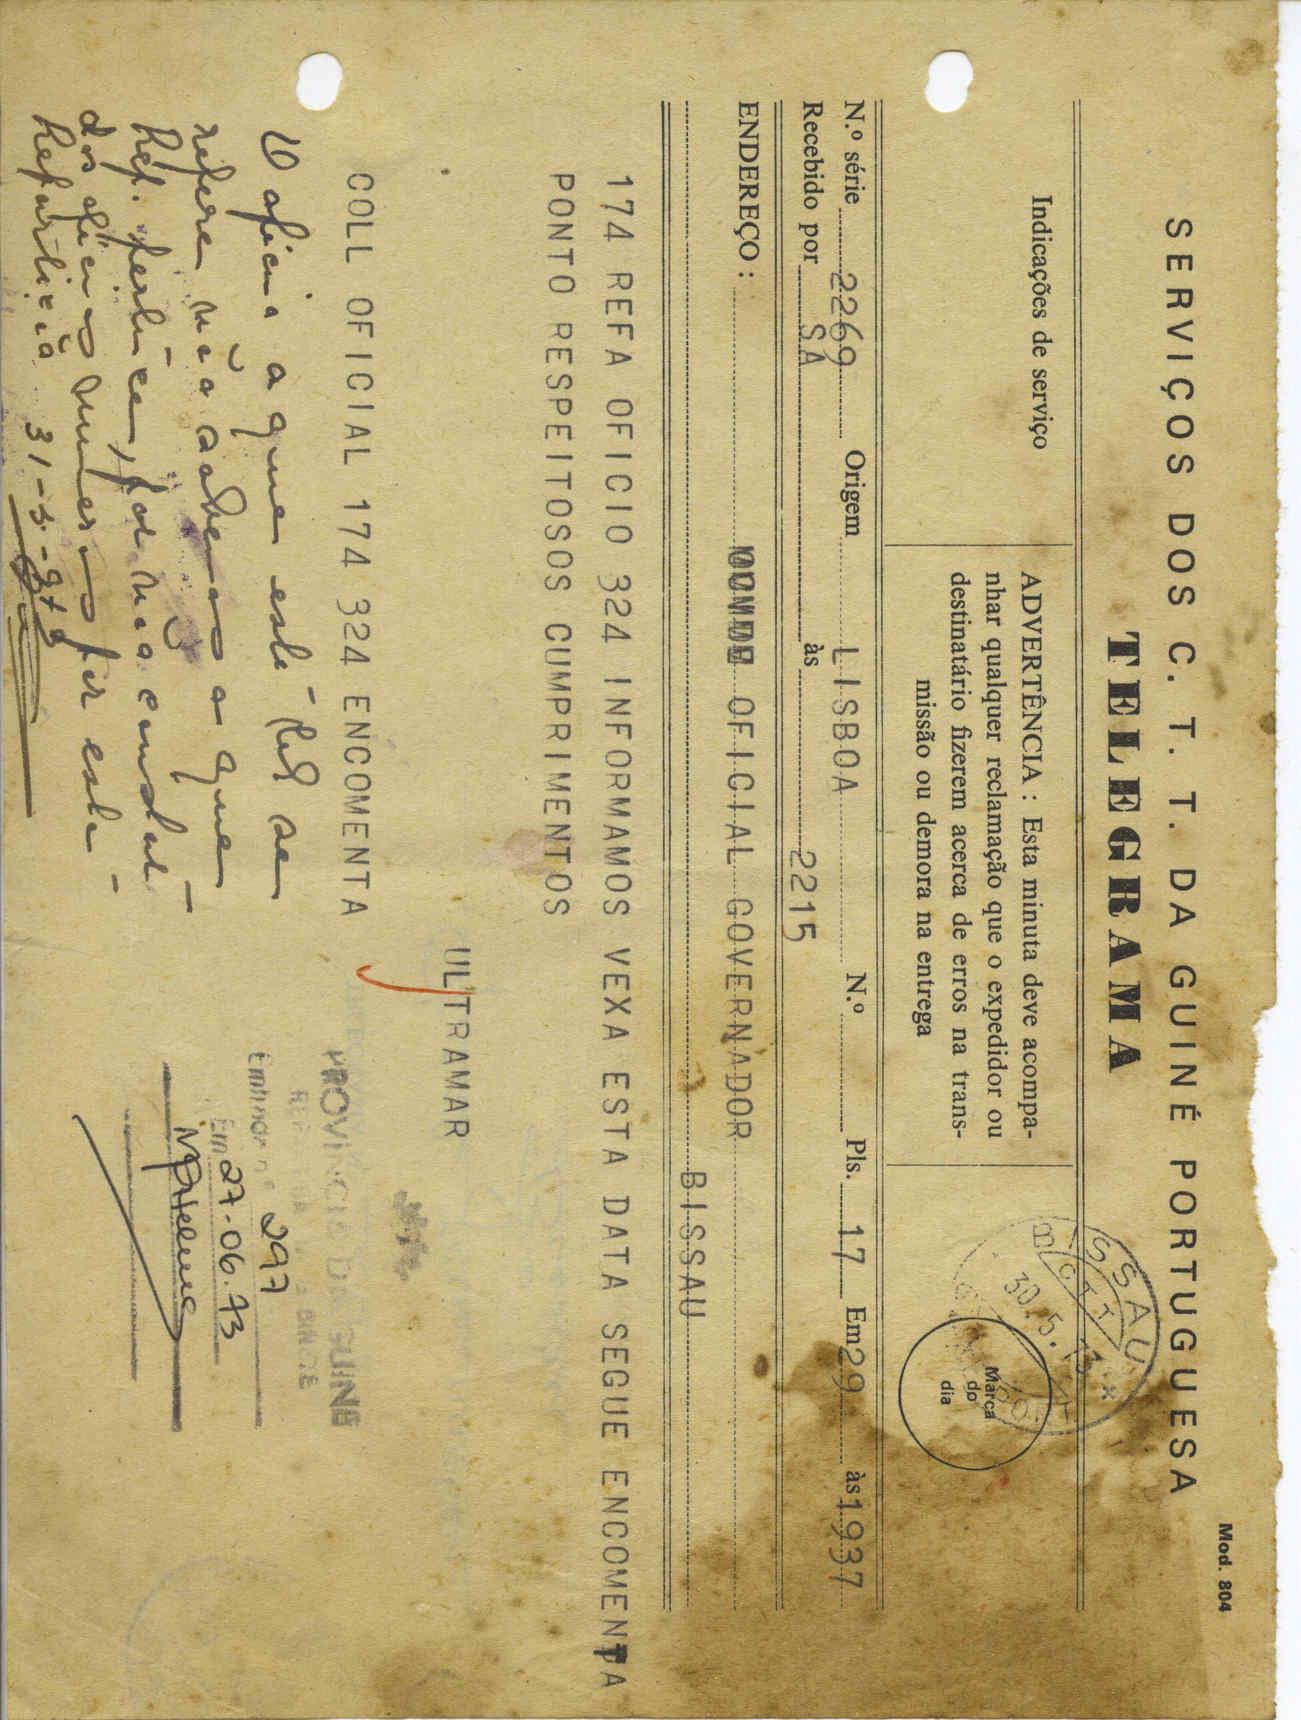 Mod. 804
SERVIÇOS DOS C. T. T. DA GUINÉ PORTUGUESA
TELEGRAMA
Indicações de serviço
ADVERTÊNCIA : Esta minuta deve acompa-
nhar qualquer reclamação que o expedidor ou
destinatário fizerem acerca de erros na trans-
missão ou demora na entrega
SSAU
CTT
30.5.73
Marca
do
dia
N.º série 2269 Origem LISBOA N.º Pls. 17 Em 29 às 1937
Recebido por SA às 2215
ENDEREÇO : OFICIAL GOVERNADOR
BISSAU
174 REFA OFICIO 324 INFORMAMOS VEXA ESTA DATA SEGUE ENCOMENTA
PONTO RESPEITOSOS CUMPRIMENTOS
ULTRAMAR
COLL OFICIAL 174 324 ENCOMENTA
O oficio a que este tel se
refere não sabemos a que
Rep. pertence, por não constar
dos oficios numerados por esta
Repartição 31-5-973
PROVINCIA DA GUINÉ
297
Em 27.06.73